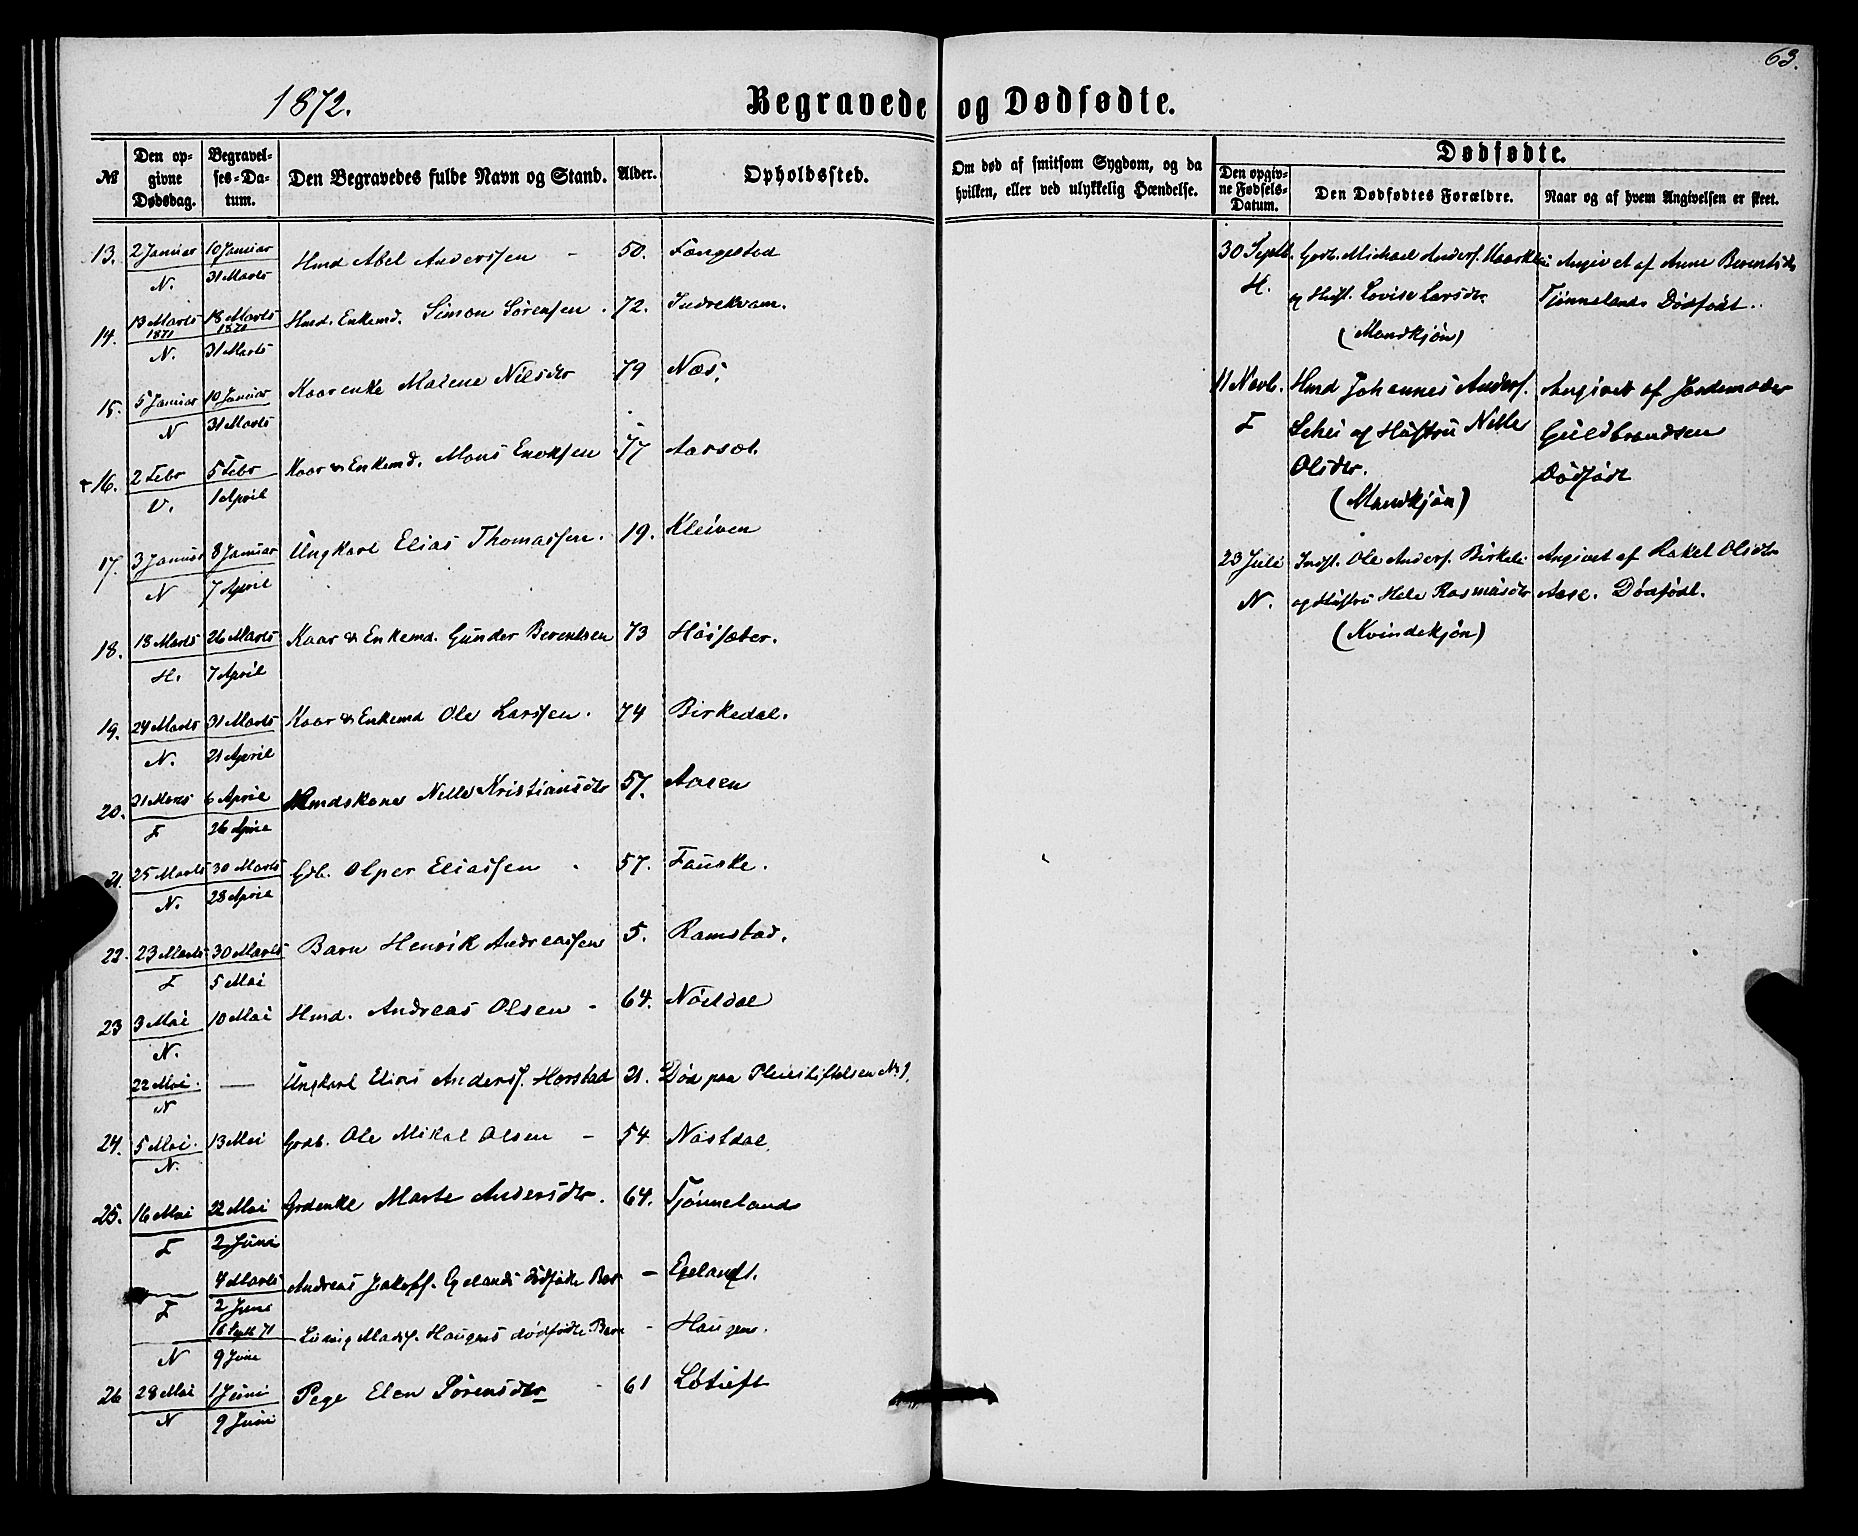 63.
1872.
Begravede og Dødfødte.
№
Den opgivne Dødsdag.
Begravelses-Datum.
Den Begravedes fulde Navn og Stand.
Alder.
Opholdssted.
Om død af smitsom Sygdom, og da hvilken, eller ved ulykkelig Hændelse.
Dødfødte.
Den opgivne Fødsels-Datum.
Den Dødfødtes Forældre.
Naar og af hvem Angivelsen er skeet.
13. 2 Januar 10 Januar Hmd Abel Anderssen - 50. Fængestad
N. 31 Marts
14. 13 Marts 1871 18 Marts 1871 Hmd. Enkemd. Simon Sørensen . 72. Indrekvam.
N. 31 Marts
15. 5 Januar 10 Januar Kaarenke Malene Nilsdtr 79 Næs.
N 31 Marts
16. 2 Febr 5 Febr Kaar & Enkemd. Mons Enoksen 77 Aarsæt.
V. 1 April
17. 3 Januar 8 Januar Ungkarl Elias Thomassen. 19. Kleiven
N 7 April
18. 18 Marts 26 Marts Kaar & Enkemd. Gunder Berentsen 73 Høisæter.
H. 7 April
19. 24 Marts 31 Marts Kaar & Enkemd Ole Larssen. 74 Birkedal.
N. 21 April
20. 21 Marts 6 April Hmdskone Nille Kristiansdtr 57. Aasen
F 26 April
21. 25 Marts 30 Marts Gdb. Olper Eliassen - 57. Fauske.
N. 28 April
22. 23 Marts 30 Marts Barn Henrik Andreassen 5. Ramstad.
F 5 Mai
23 3 Mai 10 Mai Hmd. Andreas Olsen - 64. Nöstdal
N.
22 Mai. — Ungkarl Elias Anders. Horstad 21. Død paa Pleiestiftelsen No 1.
N
24. 5 Mai. 13 Mai Grdb. Ole Mikal Olsen - 54 Nøstdal
N.
25. 16 Mai 22 Mai Grdenke Marte Andersdtr. 64. Tjønneland
F 2 Juni
4 Marts Andreas Jakobs. Egelands dødfødte Bar - Egeland
F 2 Juni
16 Septb 71 Ludvig Mads. Haugens dødfødte Barn - Haugen.
N 9 Juni
26 28 Mai 1 Juni Pege Elen Sørensdtr - 61 Løtieft
N 9 Juni
30 Septb. Grdb. Michael Anders. Angivet af Anne Berentsdtr
H. og Hust. Lovise Larsdtr. Tjønneland Dødfødt.
(Mandkjøn)
11 Novb. Hmd Johannes Anders. Angivet af Jordemoder
F Lehei og Hustru Nille Guldbrandsen
Olsdtr. Dödfødt
(Mandkjøn)
23 Juli Indst. Ole Anders. Birkeli Angivet af Rakel Olsdtr
N. og Hustru Hele Rasmusdtr Aase. Dødfødt.
(Kvindekjøn)